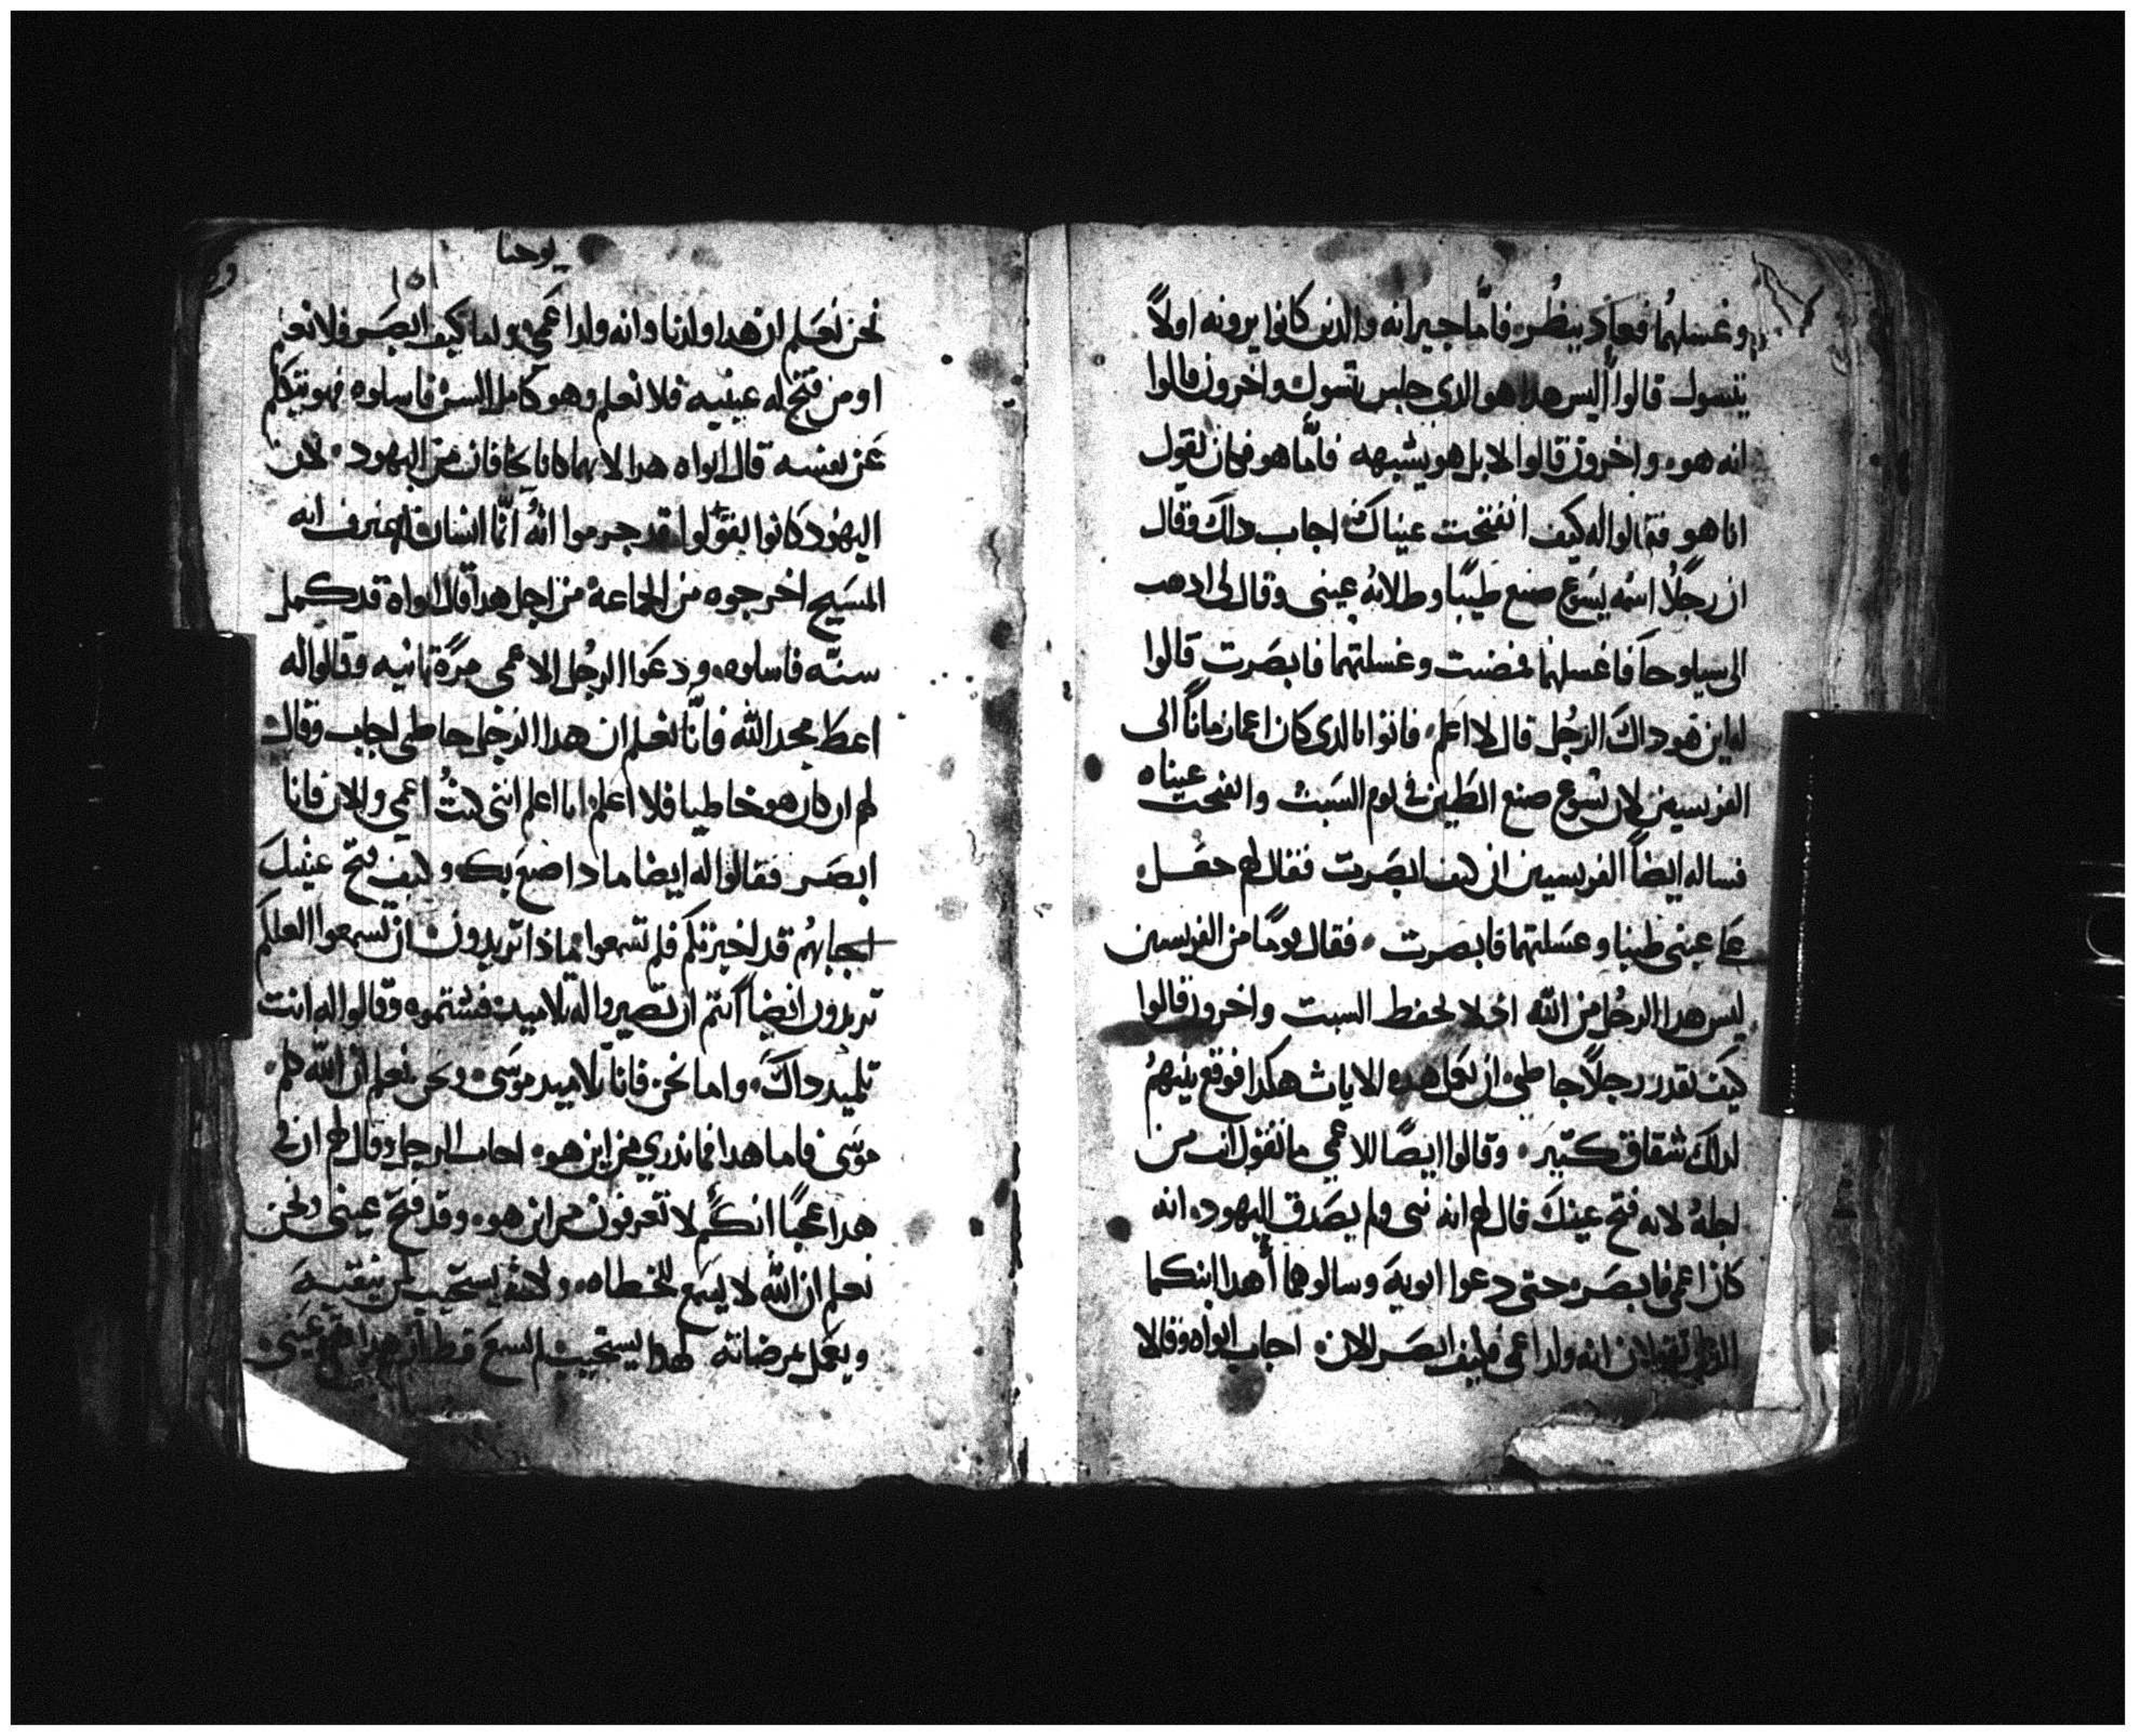 وغسلهما فعاد ينظر فاما جيرانه والذين كانوا يرونه اولاً
يتسول قالوا أليس هدا هو الدي جلس يتسول واخرون قالوا
انه هو واخرون قالوا لا بل هو يشبهه فامَّا هو فكان يقول
انا هو فقالوا له كيف انفتحت عيناك اجاب داك وقال
ان رجلاً اسمه يسوع صنع طيبًا وطلا به عيني وقال لي ادهب
الى سيلوحا فاغسلهما فمضيت وغسلتهما فابصرت قالوا
له اين هو داك الرجُل قال لا اعلم فاتوا بالدي كان اعما زماناً الى
الفريسين لان يسوع صنع الطين في يوم السبت وانفتحت عيناه
فساله ايضاً الفريسين ان كيف ابصرت فقال لهم جعل
على عيني طينا وغسلتهما فابصرت فقال يومًا من الفريسين
ليس هدا الرجُل من الله اد لا يحفظ السبت واخرون قالوا
كيف يقدر رجلاً خاطي ان يعمل هده الايات هكدا فوقع بينهمُ
لدلك شقاق كتير وقالوا ايضًا للاعمي ما تقول انت من
اجلهُ لانه فتح عينك قال لهم انه نبى ولم يصَدق اليهود انه
كان اعمى فابصَر حتى دعوا ابويه وسالوهما أهدا ابنكما
الدي تقولان انه ولد اعمى فكيف ابصَر الان اجاب ابواه وقالا
يوحنا
١٥١
نحن نعلم ان هدا ولدنا وانه ولد اعمي بولما كيف ابصَر فلا نعلم
او من فتح له عينيه فلا نعلم وهو كامل السن فاسلوه فهو يتكلم
عن نفسه قال ابواه هدا لانهما كانا يخافان من اليهود لان
اليهُود كانوا يقولوا قد جرموا انهُ أيّما انسان اعترف انه
المسَيح اخرجوه من الجماعة من اجل هدا قال ابواه قد كمل
سنّه فاسلوه ودعَوا الرجُل الاعمى مرَّة تانيه وقالوا له
اعط مجد الله فانّا نعلم ان هدا الرجُل خاطى اجاب وقال
لهم ان كان هو خاطيا فلا اعلم اما اعلم اننى كنتُ اعمي والان فانا
ابصَر فقالوا له ايضا ما دا صنع بك وكيف فتح عينيك
اجابهُم قد اخبرتكم فلم تسمعوا فماذا تريدون ان تسمعوا العلكم
تريدون ايضاً انتم ان تصيروا له تلاميد فشتموه وقالوا له انت
تلميد داكَ واما نحن فانا تلاميد موسَى ونحن نعلم ان الله كلم
موسَى فاما هدا فما ندري من اين هو اجاب الرجل وقال لهم ان في
هدا عجبًا انكُم لا تعرفون من اين هو وقد فتح عينى ونحن
نعلم ان الله لا يسمع للخطاه ولاكنه يستجيب لمن يتقيه
ويعمل مرضاته لهدا يستجيب لم يسمع قط ان